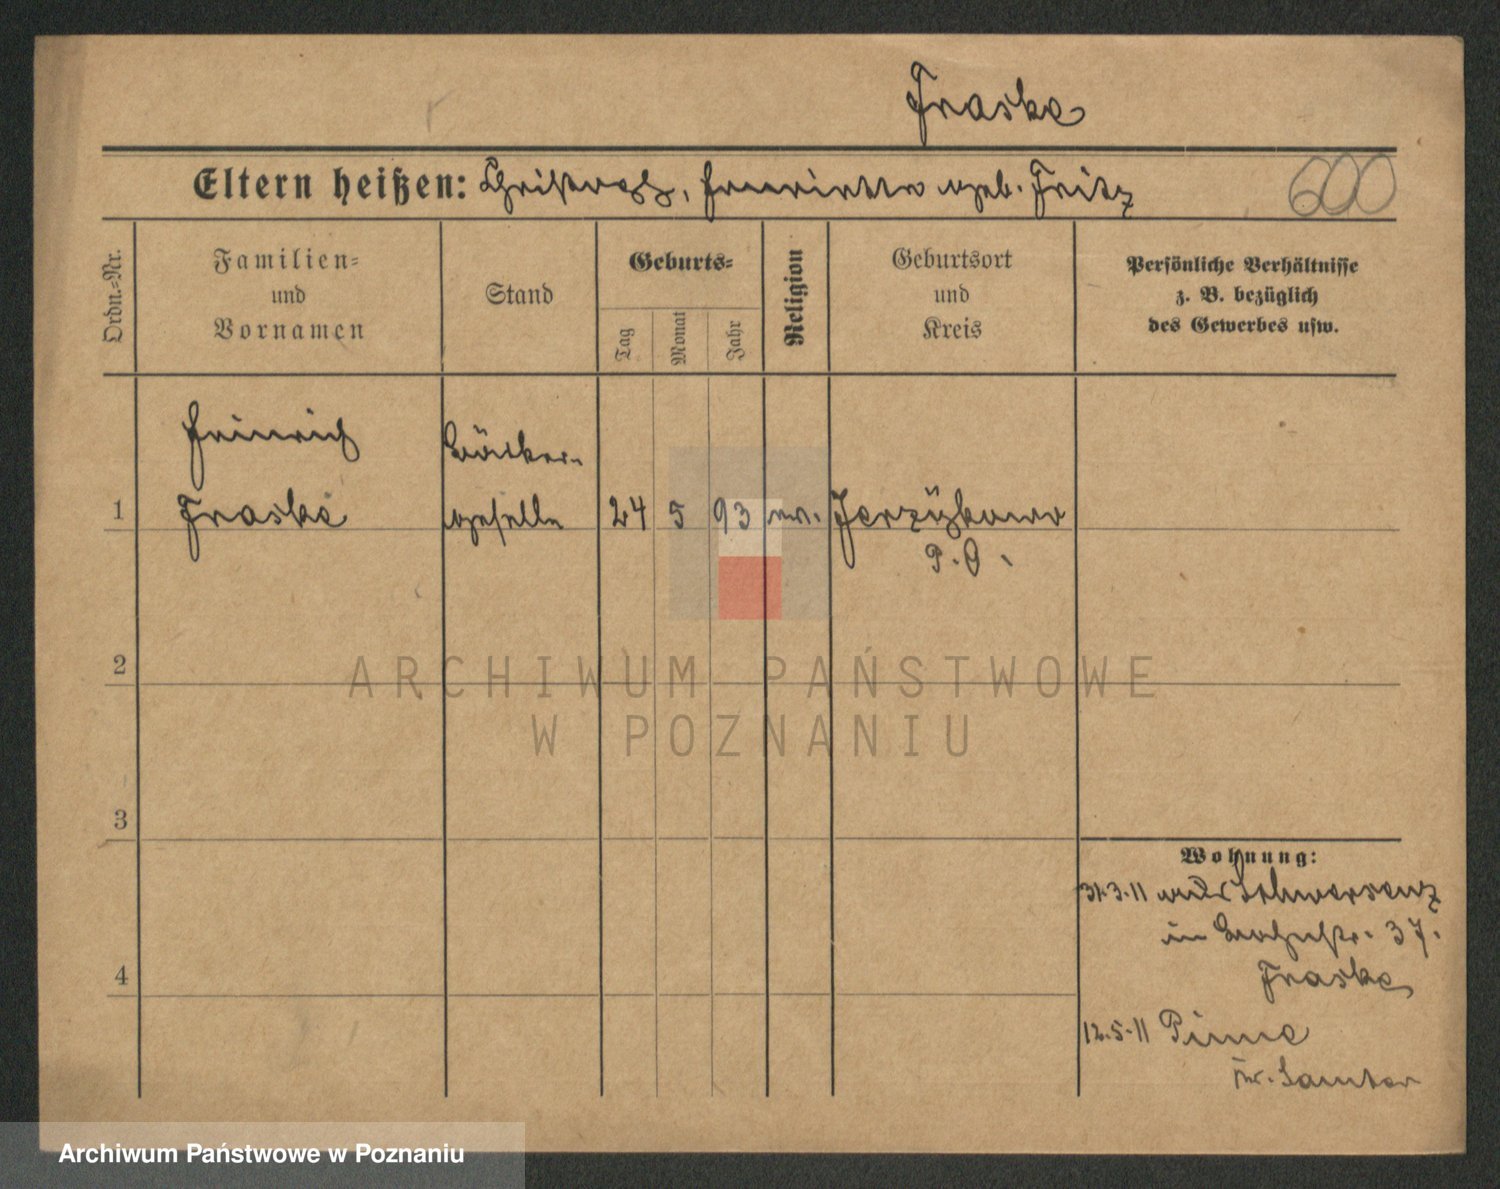 Fraske
Eltern heißen: Christoph, Henriette geb. Fritz
600
Ordn.=Nr.
Familien=
und
Vornamen
Stand
Geburts=
Tag
Monat
Jahr
Religion
Geburtsort
und
Kreis
Persönliche Verhältnisse
z. B. bezüglich
des Gewerbes usw.
Heinrich
Bäcker-
1 Fraske geselle 24 5 93 ev. Jerzykowo
P. O.
2
3
4
Wohnung:
31.3.11 aus Schwersenz
in Bahnstr. 37.
Fraske
12.5.11 Pinne
Kr. Samter
ARCHIWUM PAŃSTWOWE
W POZNANIU
Archiwum Państwowe w Poznaniu